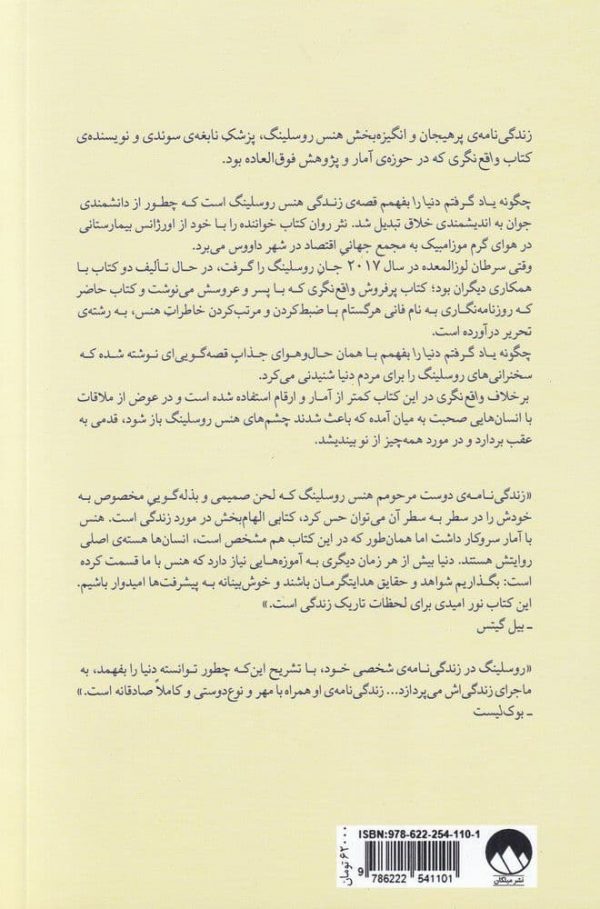 زندگی‌نامه‌ی پرهیجان و انگیزه‌بخش هنس روسلینگ، پزشکِ نابغه‌ی سوئدی و نویسنده‌ی
کتاب واقع‌نگری که در حوزه‌ی آمار و پژوهش فوق‌العاده بود.
چگونه یاد گرفتم دنیا را بفهمم قصه‌ی زندگی هنس روسلینگ است که چطور از دانشمندی
جوان به اندیشمندی خلاق تبدیل شد. نثر روان کتاب خواننده را با خود از اورژانس بیمارستانی
در هوای گرم موزامبیک به مجمع جهانیِ اقتصاد در شهر داووس می‌برد.
وقتی سرطان لوزالمعده در سال ۲۰۱۷ جانِ روسلینگ را گرفت، در حال تألیف دو کتاب با
همکاری دیگران بود؛ کتاب پرفروش واقع‌نگری که با پسر و عروسش می‌نوشت و کتاب حاضر
که روزنامه‌نگاری به نام فانی هرگستام با ضبط‌کردن و مرتب‌کردن خاطراتِ هنس، به رشته‌ی
تحریر درآورده است.
چگونه یاد گرفتم دنیا را بفهمم با همان حال‌وهوای جذابِ قصه‌گویی‌ای نوشته شده که
سخنرانی‌های روسلینگ را برای مردم دنیا شنیدنی می‌کرد.
برخلاف واقع‌نگری در این کتاب کمتر از آمار و ارقام استفاده شده است و در عوض از ملاقات
با انسان‌هایی صحبت به میان آمده که باعث شدند چشم‌های هنس روسلینگ باز شود، قدمی به
عقب بردارد و در مورد همه‌چیز از نو بیندیشد.
«زندگی‌نامه‌ی دوست مرحومم هنس روسلینگ که لحن صمیمی و بذله‌گوییِ مخصوص به
خودش را در سطر به سطر آن می‌توان حس کرد، کتابی الهام‌بخش در مورد زندگی است. هنس
با آمار سروکار داشت اما همان‌طور که در این کتاب هم مشخص است، انسان‌ها هسته‌ی اصلی
روایتش هستند. دنیا بیش از هر زمان دیگری به آموزه‌هایی نیاز دارد که هنس با ما قسمت کرده
است: بگذاریم شواهد و حقایق هدایتگرمان باشند و خوش‌بینانه به پیشرفت‌ها امیدوار باشیم.
این کتاب نور امیدی برای لحظات تاریک زندگی است.»
ـ بیل گیتس
«روسلینگ در زندگی‌نامه‌ی شخصی خود، با تشریح این‌که چطور توانسته دنیا را بفهمد، به
ماجرای زندگی‌اش می‌پردازد... زندگی‌نامه‌ی او همراه با مهر و نوع‌دوستی و کاملاً صادقانه است.»
ـ بوک‌لیست
ISBN:978-622-254-110-1
9 786222 541101
۶۲۰۰۰ تومان
نشر میلکان